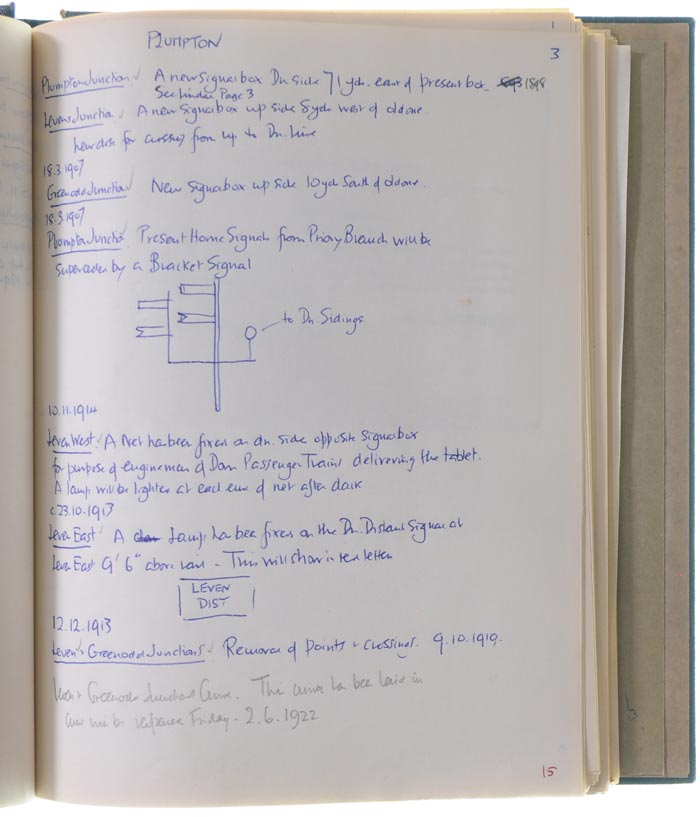 1
PLUMPTON
3
Plumpton Junction A new Signal box Dn. side 71 yds. east of present box. 1898
See Lindal Page 3
Levens Junction A new Signal box up side 8 yds west of old one.
New disc for crossing from up to Dn. Line
18.3.1907
Greenodd Junction New Signal box up side 10 yds South of old one.
18.3.1907
Plumpton Junctn. Present Home Signals from Priory Branch will be
superceded by a Bracket Signal
to Dn. Sidings
10.11.1914
Leven West. A Net has been fixed on dn. side opposite Signal box
for purpose of enginemen of Down Passenger Trains delivering the tablet.
A lamp will be lighted at each end of net after dark
c.23.10.1913
Leven East A Lamp has been fixed on the Dn. Distant Signal at
Leven East 9' 6" above rail - This will show in red letter
LEVEN
DIST
12.12.1913
Leven & Greenodd Junctions. Removal of Points & crossings. 9.10.1919.
Leven & Greenodd Junctions Curve. This curve has been laid in
and will be Friday - 2.6.1922
15